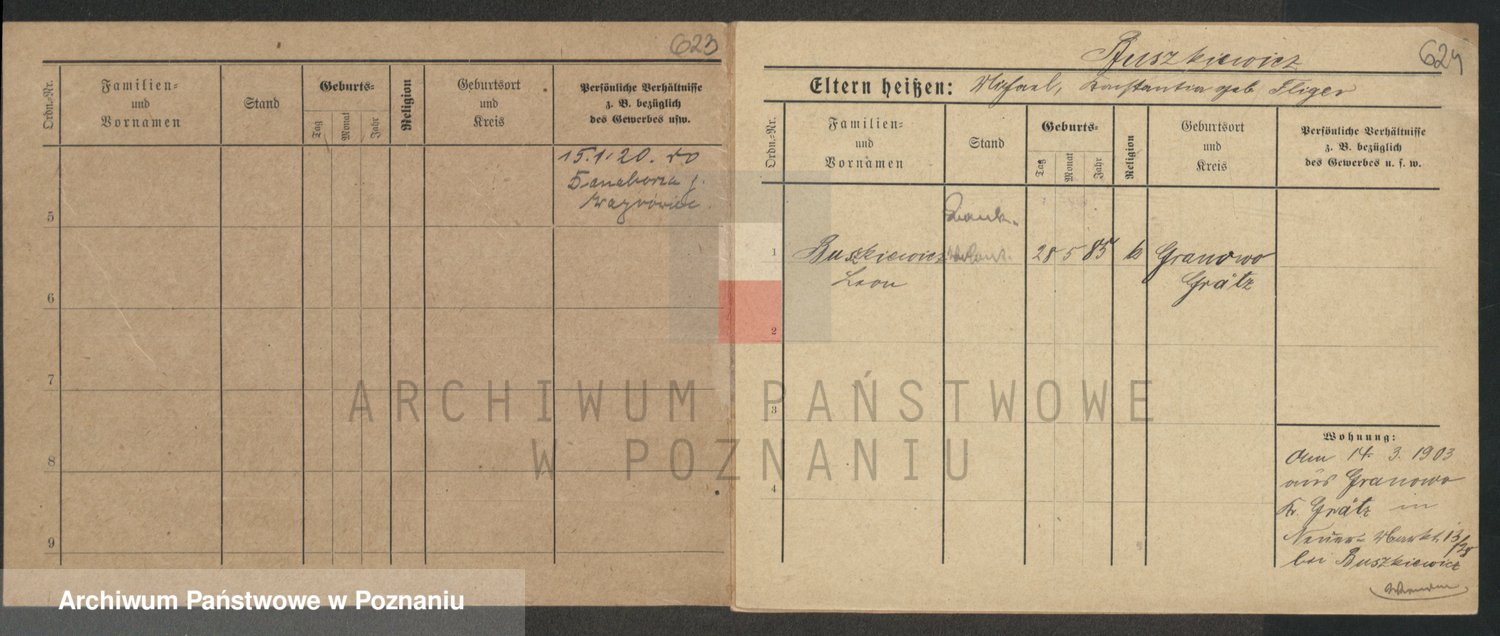 623
Ordn.-Nr.
Familien-
und
Vornamen
Stand
Geburts-
Tag
Monat
Jahr
Religion
Geburtsort
und
Kreis
Persönliche Verhältnisse
z. B. bezüglich
des Gewerbes usw.
15.1.20.
5
6
7
8
9
Buszkiewicz
624
Eltern heißen: Michael, Konstantia geb. Fliger
Ordn.-Nr.
Familien-
und
Vornamen
Stand
Geburts-
Tag
Monat
Jahr
Religion
Geburtsort
und
Kreis
Persönliche Verhältnisse
z. B. bezüglich
des Gewerbes u. s. w.
1
Buszkiewicz 28 5 85 k Granowo
Leon Grätz
2
3
4
Wohnung:
Am 14. 3. 1903
aus Granowo
Kr. Grätz in
Neuer Markt 13/
bei Buszkiewicz
ARCHIWUM PAŃSTWOWE
W POZNANIU
Archiwum Państwowe w Poznaniu